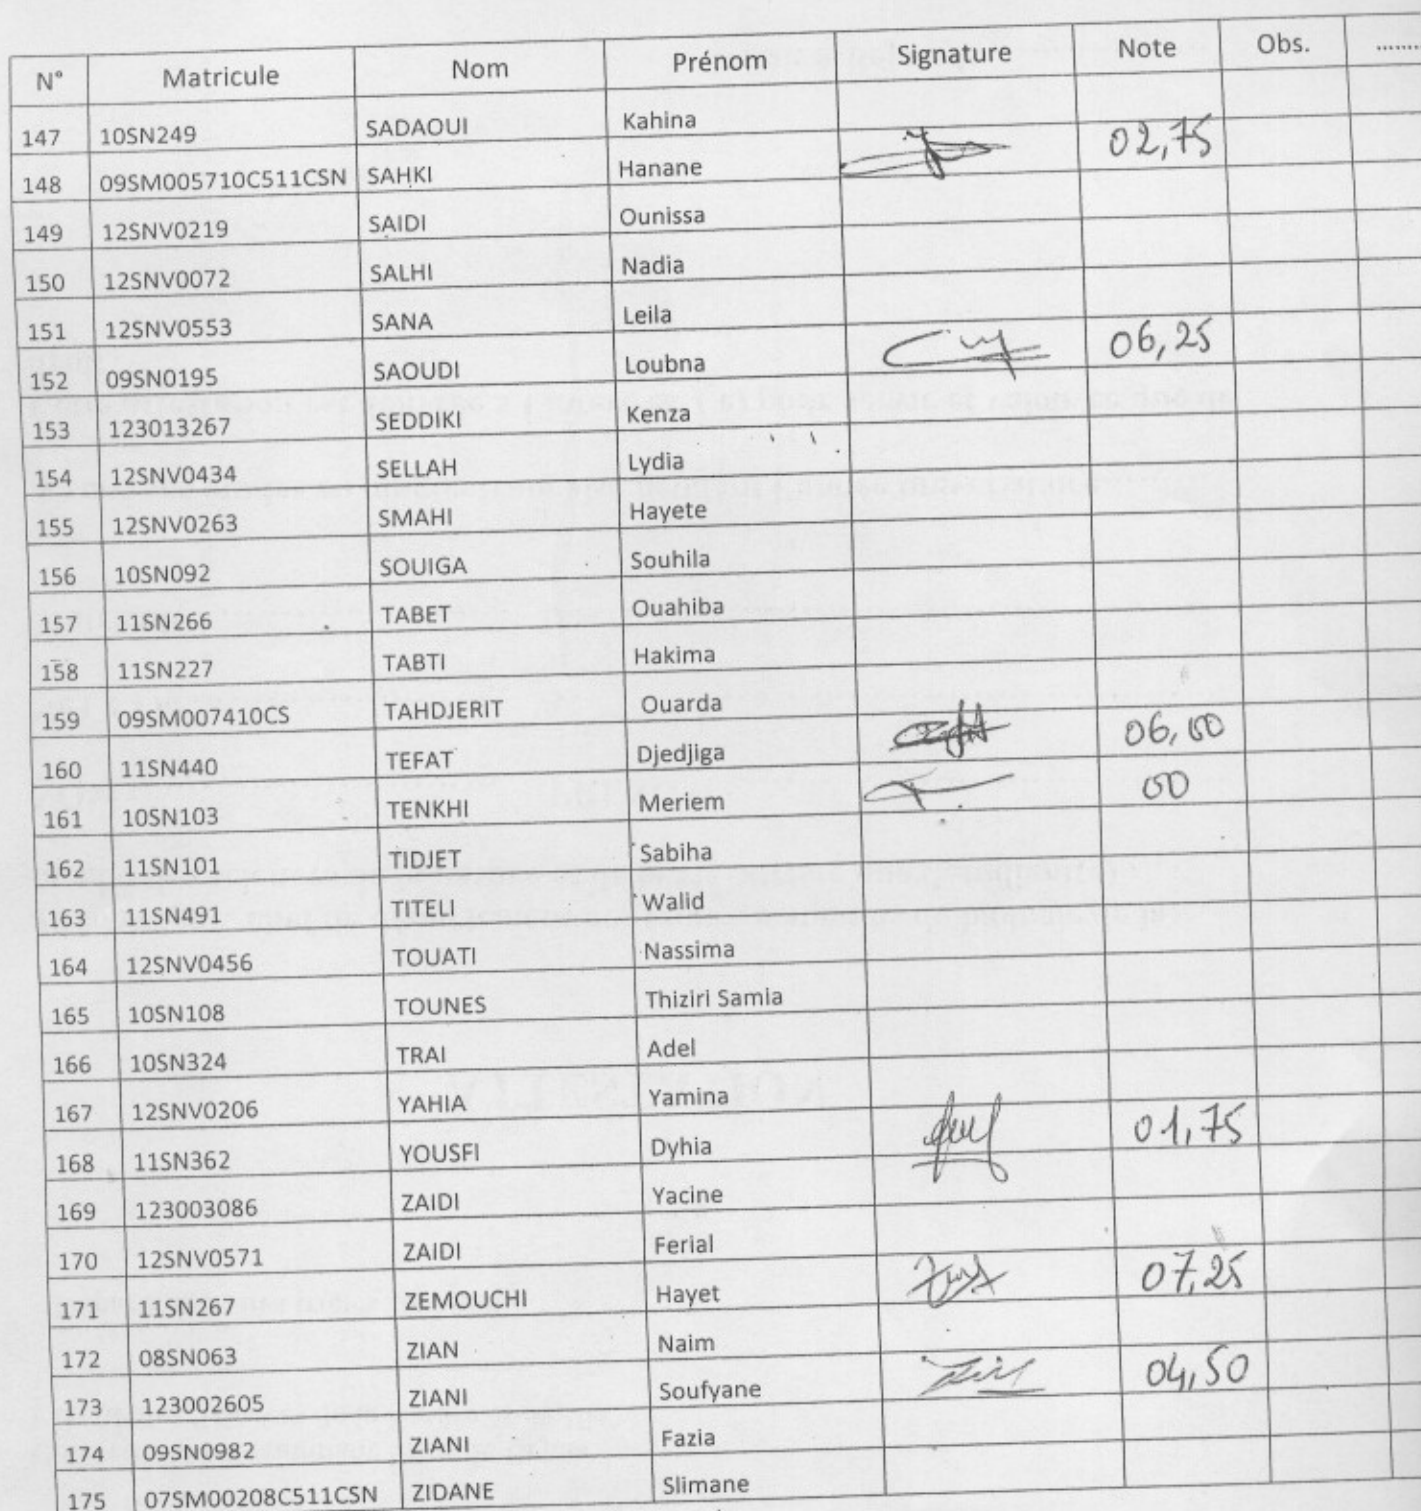 N° Matricule Nom Prénom Signature Note Obs. ........
147 10SN249 SADAOUI Kahina
148 09SM005710C511CSN SAHKI Hanane 02,75
149 12SNV0219 SAIDI Ounissa
150 12SNV0072 SALHI Nadia
151 12SNV0553 SANA Leila
152 09SN0195 SAOUDI Loubna 06,25
153 123013267 SEDDIKI Kenza
154 12SNV0434 SELLAH Lydia
155 12SNV0263 SMAHI Hayete
156 10SN092 SOUIGA Souhila
157 11SN266 TABET Ouahiba
158 11SN227 TABTI Hakima
159 09SM007410CS TAHDJERIT Ouarda
160 11SN440 TEFAT Djedjiga 06,00
161 10SN103 TENKHI Meriem 00
162 11SN101 TIDJET Sabiha
163 11SN491 TITELI Walid
164 12SNV0456 TOUATI Nassima
165 10SN108 TOUNES Thiziri Samia
166 10SN324 TRAI Adel
167 12SNV0206 YAHIA Yamina
168 11SN362 YOUSFI Dyhia 01,75
169 123003086 ZAIDI Yacine
170 12SNV0571 ZAIDI Ferial
171 11SN267 ZEMOUCHI Hayet 07,25
172 08SN063 ZIAN Naim
173 123002605 ZIANI Soufyane 04,50
174 09SN0982 ZIANI Fazia
175 07SM00208C511CSN ZIDANE Slimane